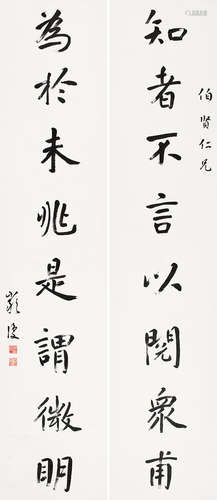 伯賢仁兄
知者不言以閱衆甫
為於未兆是謂微明